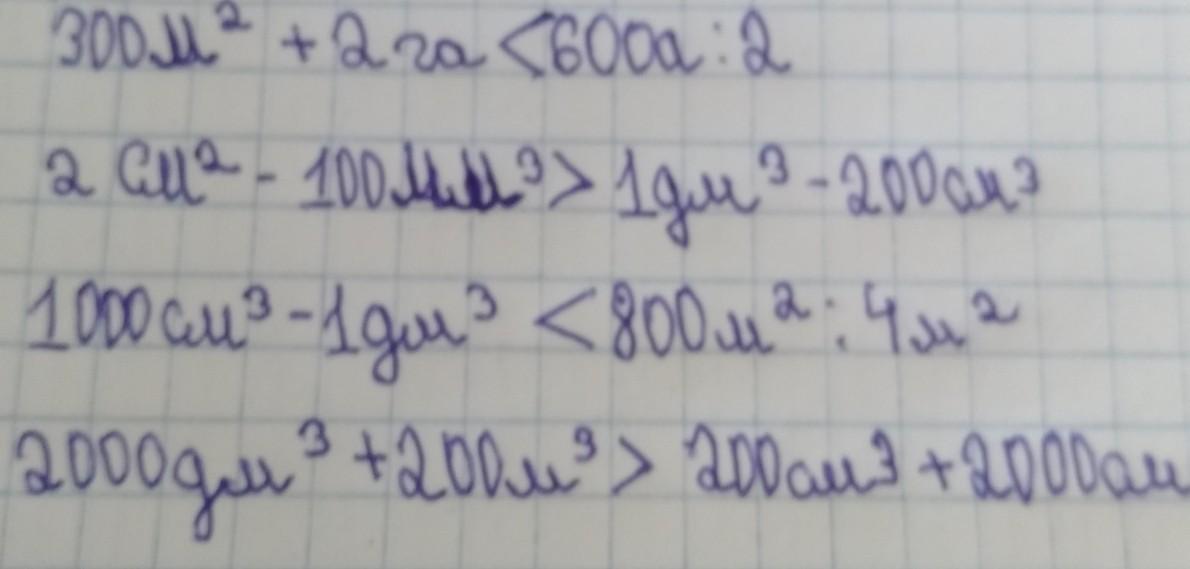 300м² + 2 га < 600а : 2
2 см² - 100мм³ > 1дм³ - 200см³
1000см³ - 1дм³ < 800м² : 4м²
2000дм³ + 200м³ > 200см³ + 2000см